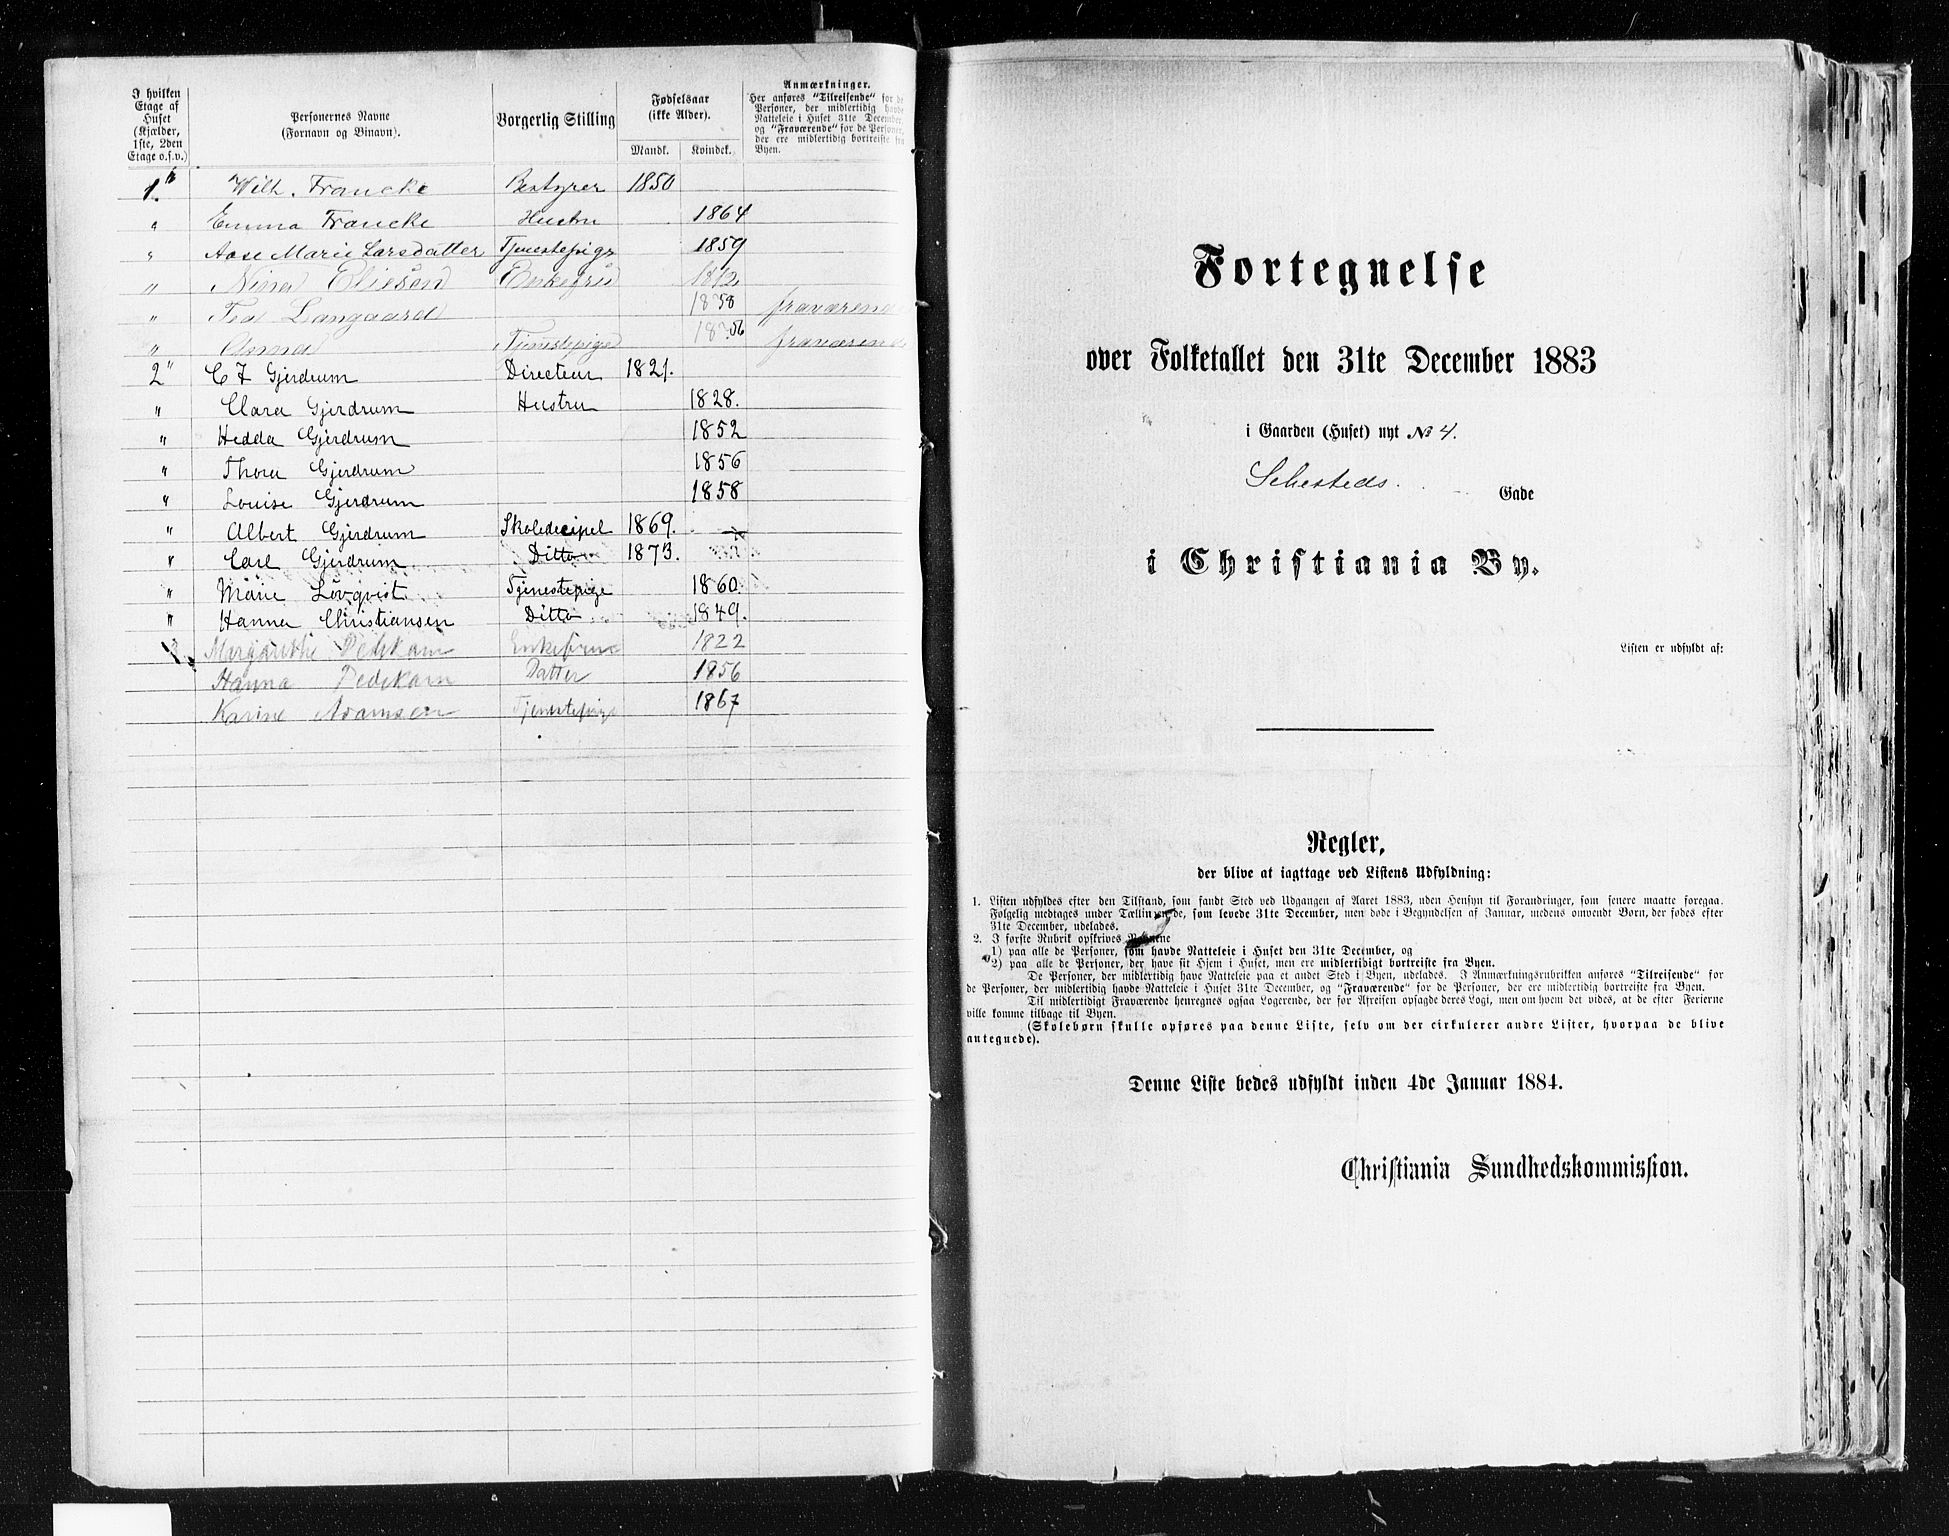 I hvilken
Etage af
Huset
(Kjælder,
1ste, 2den
Etage o.s.v.)
Personernes Navne
(Fornavn og Binavn).
Borgerlig Stilling
Fødselsaar
(ikke Alder).
Mandk. Kvindek.
Anmærkninger.
Her anføres "Tilreisende" for de
Personer, der midlertidig havde
Natteleie i Huset 31te December,
og "Fraværende" for de Personer,
der ere midlertidig bortreiste fra
Byen.
1. Wilh. Francke Bestyrer 1850
" Emma Francke Hustru 1864
" Aase Marie Larsdatter Tjenestepige 1859
" Nina Elieson Enkefru
" Tea Langaard 1858 fraværende
" Anna Tjenestepige fraværende
2" C F Gjerdrum Directeur 1821.
" Clara Gjerdrum Hustru 1828.
" Hedda Gjerdrum 1852
" Thora Gjerdrum 1856
" Louise Gjerdrum 1858
" Albert Gjerdrum Skoledecipel 1869.
" Carl Gjerdrum Ditto 1873.
" Marie Lövqvist Tjenestepige 1860.
" Hanna Christiansen Ditto 1849.
3 Margarethe Enkefrue 1822
Hanna Datter 1856
Karine Adamsen Tjenestepige 1867
Fortegnelse
over Folketallet den 31te December 1883
i Gaarden (Huset) nyt No 4.
Sehesteds Gade
i Christiania By.
Listen er udfyldt af:
Regler,
der blive at iagttage ved Listens Udfyldning:
1. Listen udfyldes efter den Tilstand, som fandt Sted ved Udgangen af Aaret 1883, uden Hensyn til Forandringer, som senere maatte foregaa.
Følgelig medtages under Tællin de, som levede 31te December, men døde i Begyndelsen af Januar, medens omvendt Børn, der fødes efter
31te December, udelades.
2. I første Rubrik opskrives Navnene
1) paa alle de Personer, som havde Natteleie i Huset den 31te December, og
2) paa alle de Personer, der have sit Hjem i Huset, men ere midlertidigt bortreiste fra Byen.
De Personer, der midlertidig have Natteleie paa et andet Sted i Byen, udelades. I Anmærkningsrubrikken anføres "Tilreisende" for
de Personer, der midlertidig havde Natteleie i Huset 31te December, og "Fraværende" for de Personer, der ere midlertidig bortreiste fra Byen.
Til midlertidigt Fraværende henregnes ogsaa Logerende, der før Afreisen opsagde deres Logi, men om hvem det vides, at de efter Ferierne
ville komme tilbage til Byen.
(Skolebørn skulle opføres paa denne Liste, selv om der cirkulerer andre Lister, hvorpaa de blive
antegnede).
Denne Liste bedes udfyldt inden 4de Januar 1884.
Christiania Sundhedskommission.